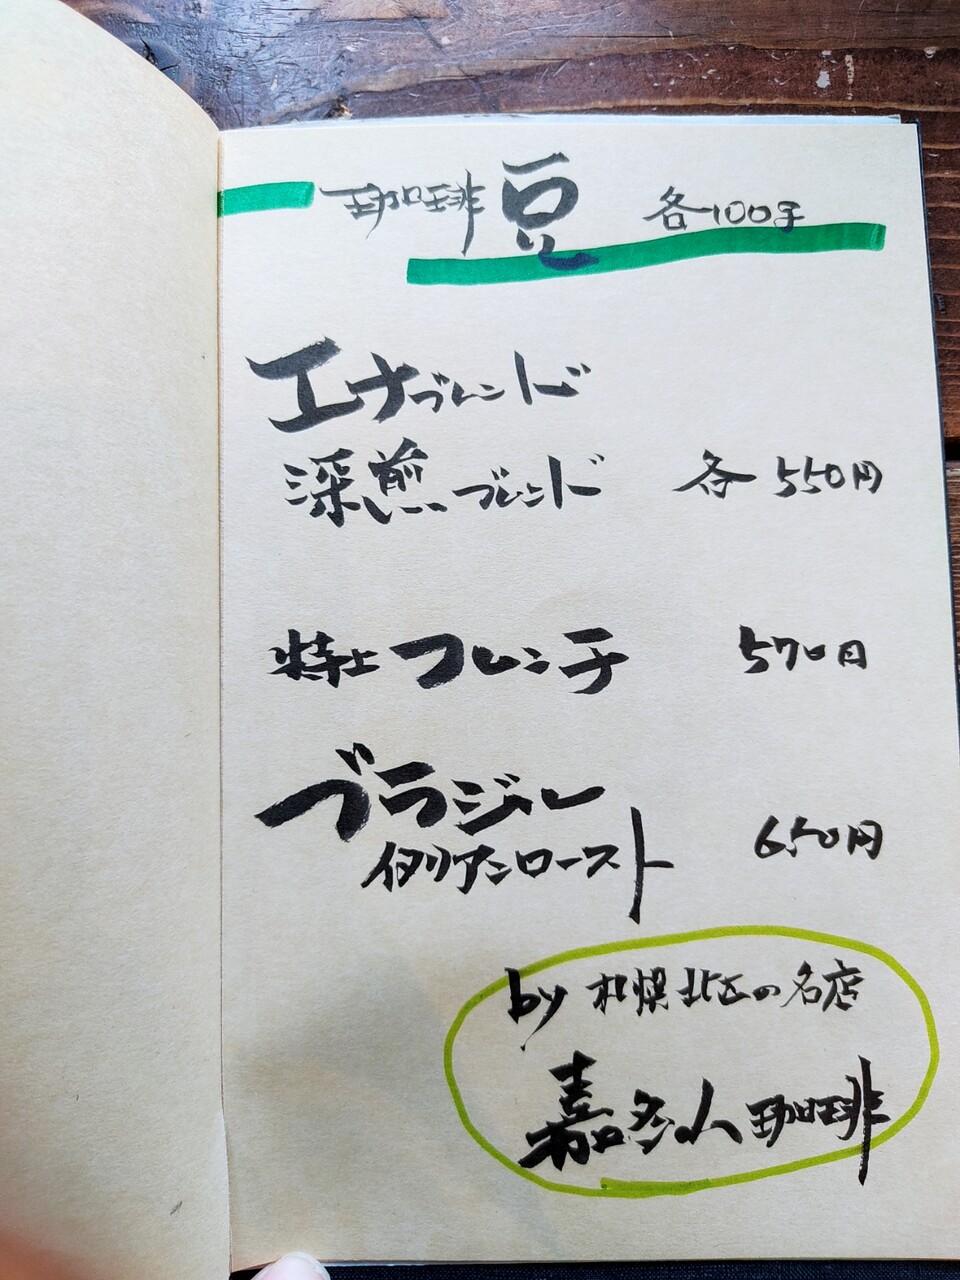 珈琲豆 各100g
エナブレンド
深煎ブレンド 各550円
特上フレンチ 570円
ブラジル
イタリアンロースト 650円
by 札幌北区の名店
嘉多山珈琲